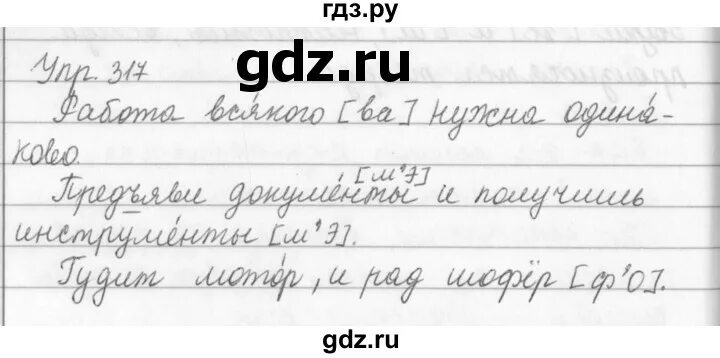 гдз.ру
Упр. 317
Работа вся́кого [ва] нужна одина́-
ково.
Предъяви докуме́нты [м'Э] и получишь
инструме́нты [м'Э].
Гудит мото́р, и рад шофёр [ф'О].
gdz.ru
gdz.ru